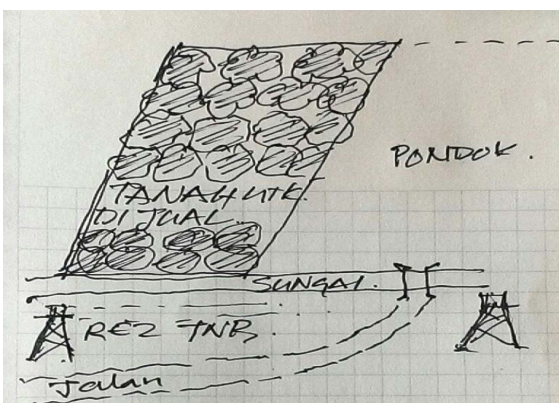 PONDOK.
TANAH UTK.
DI JUAL.
SUNGAI.
REZ TNB.
Jalan